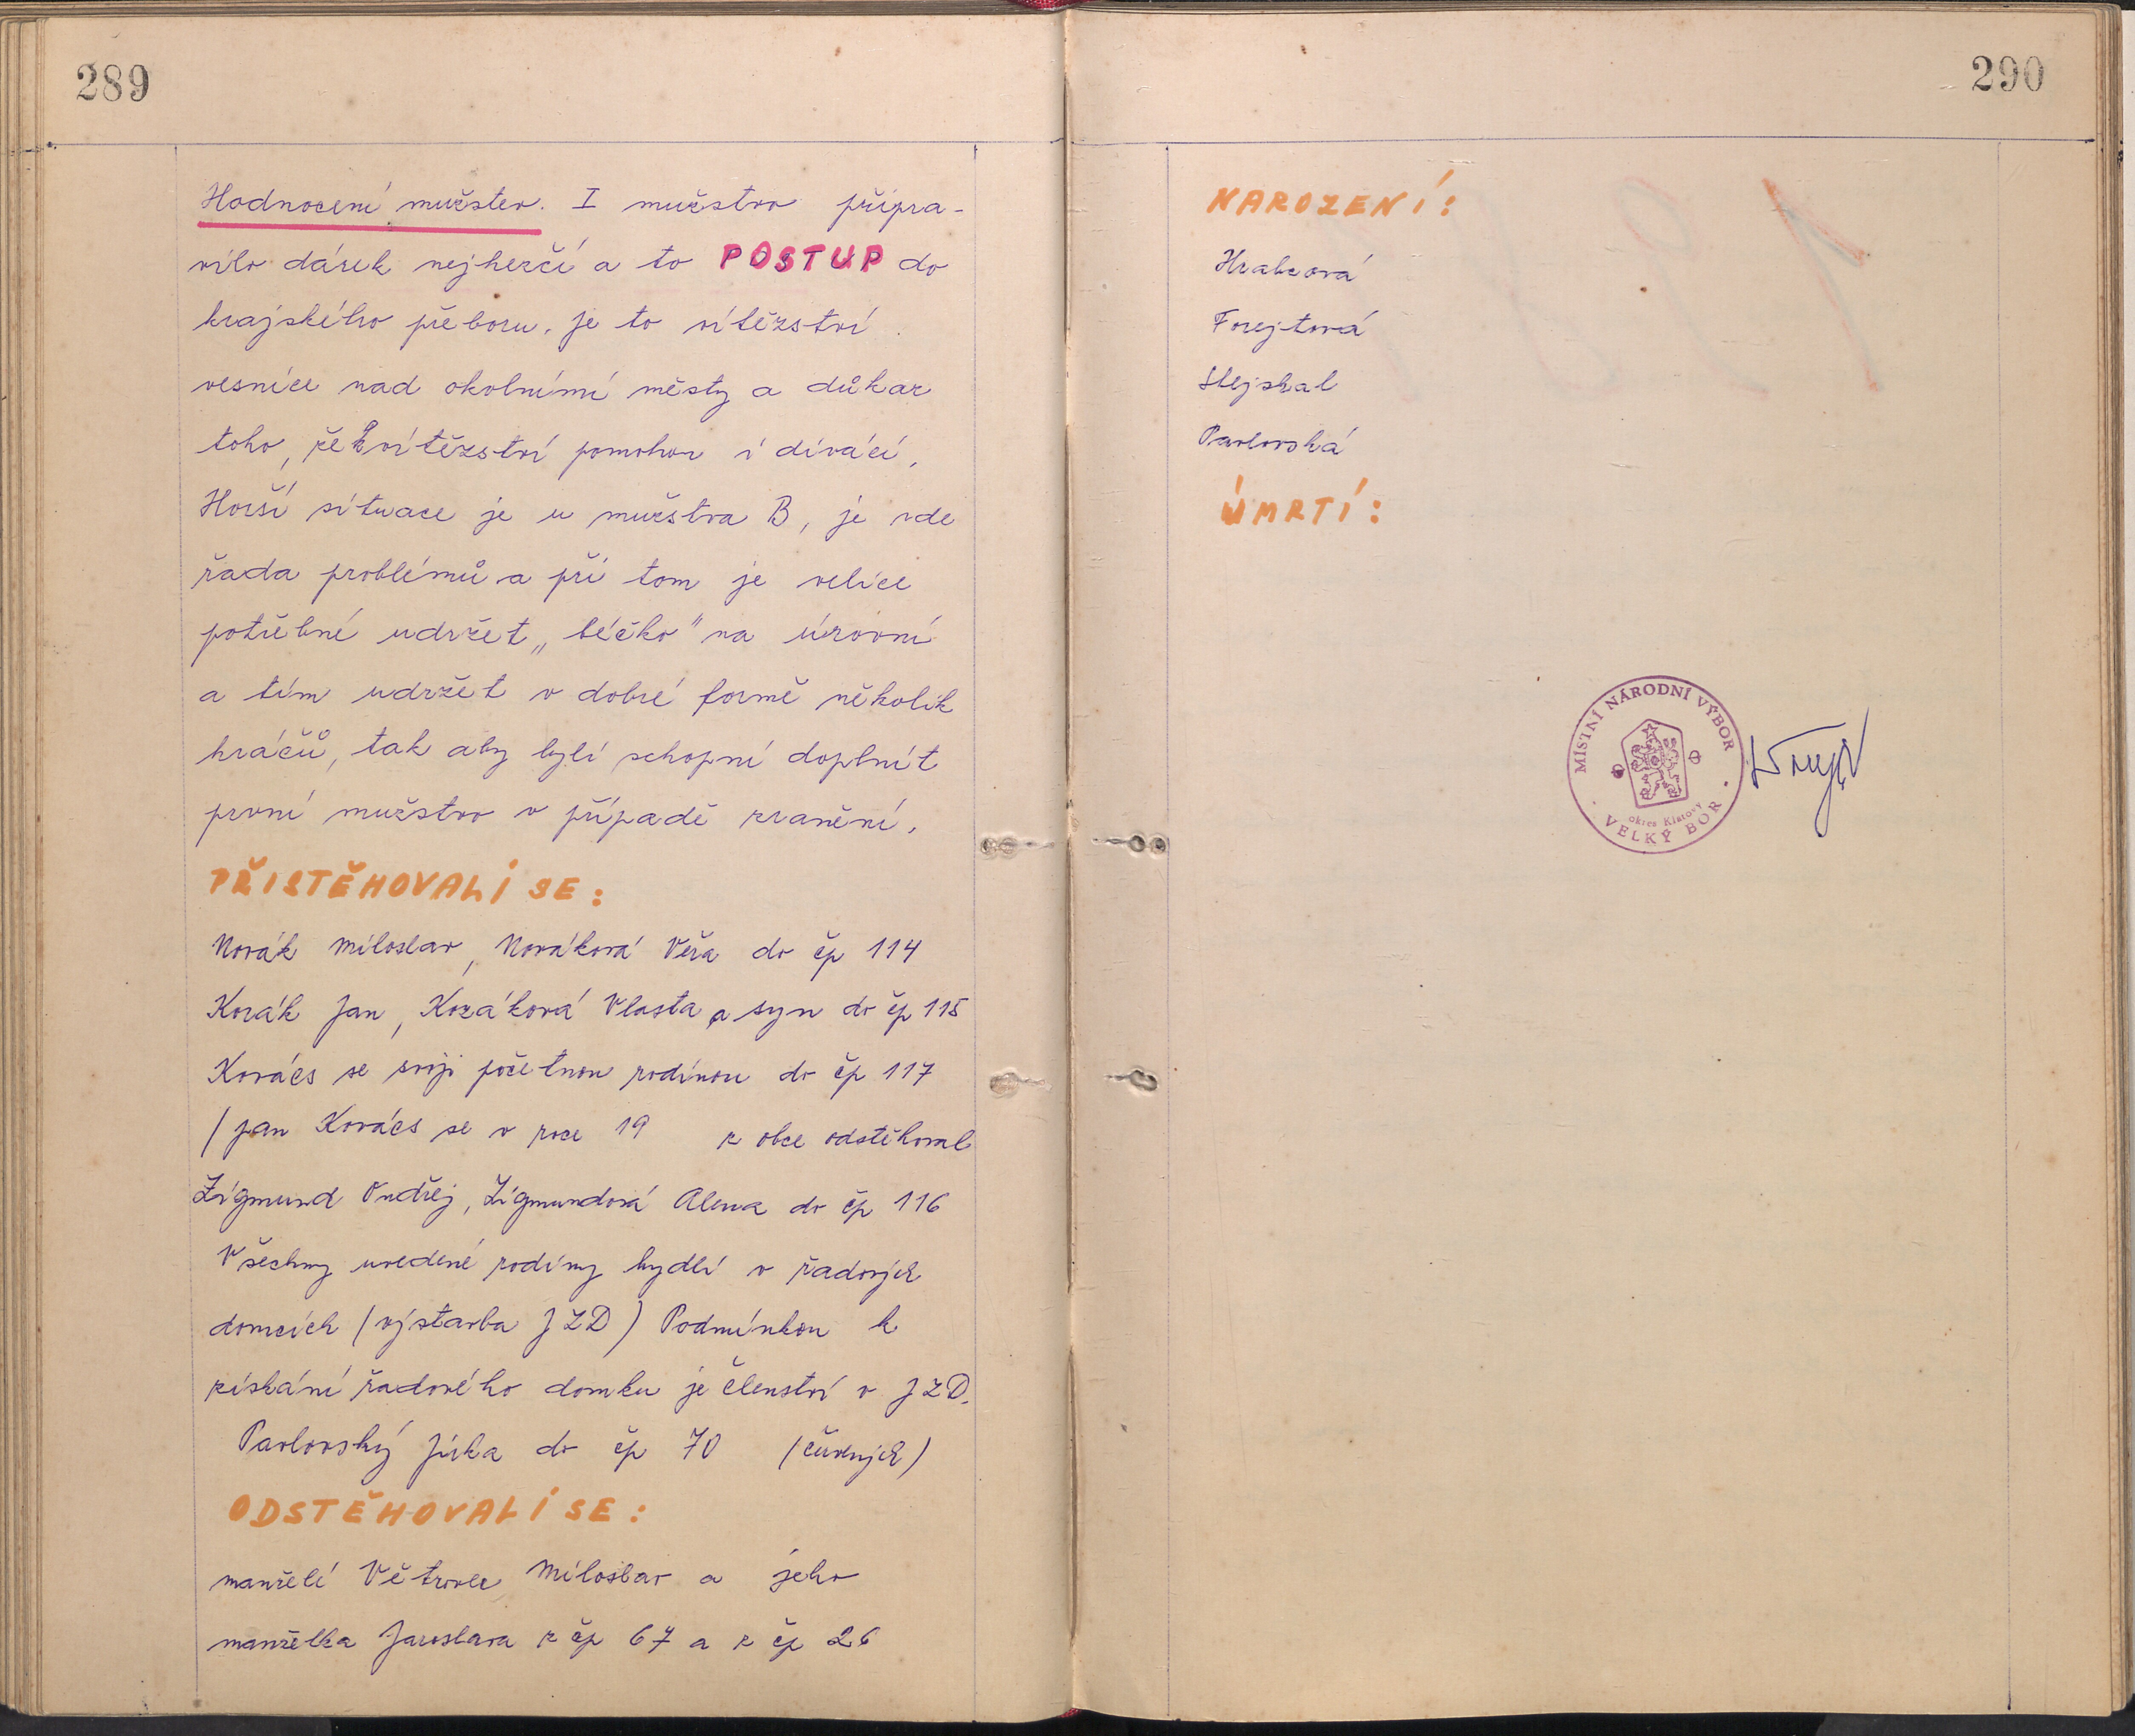 289
Hodnocení mužstev. I mužstvo připra-
vilo dárek nejhezčí a to POSTUP do
krajského přeboru. Je to vítězství
vesnice nad okolními městy a důkaz
toho, že k vítězství pomohou i diváci,
Horší situace je u mužstva B, je zde
řada problémů a při tom je velice
potřebné udržet „béčko" na úrovni
a tím udržet v dobré formě několik
hráčů, tak aby byli schopni doplnit
první mužstvo v případě zranění.
PŘISTĚHOVALI SE:
Novák Miloslav, Nováková Věra do čp 114
Kozák Jan, Kozáková Vlasta a syn do čp 115
Kovács se svojí početnou rodinou do čp 117
/pan Kovács se v roce 19 z obce odstěhoval
Žigmund Ondřej, Žigmundová Alena do čp 116
Všechny uvedené rodiny bydlí v řadových
domcích /výstavba JZD) Podmínkou k
získání řadového domku je členství v JZD.
Pavlovský Jirka do čp 70
ODSTĚHOVALI SE:
manželé Miloslav a jeho
manželka Jaroslava z čp 67 a z čp 26
290
NAROZENÍ:
Hrabcová
Forejtová
Stejskal
Pavlovská
ÚMRTÍ:
MÍSTNÍ NÁRODNÍ VÝBOR
okres Klatovy
VELKÝ BOR